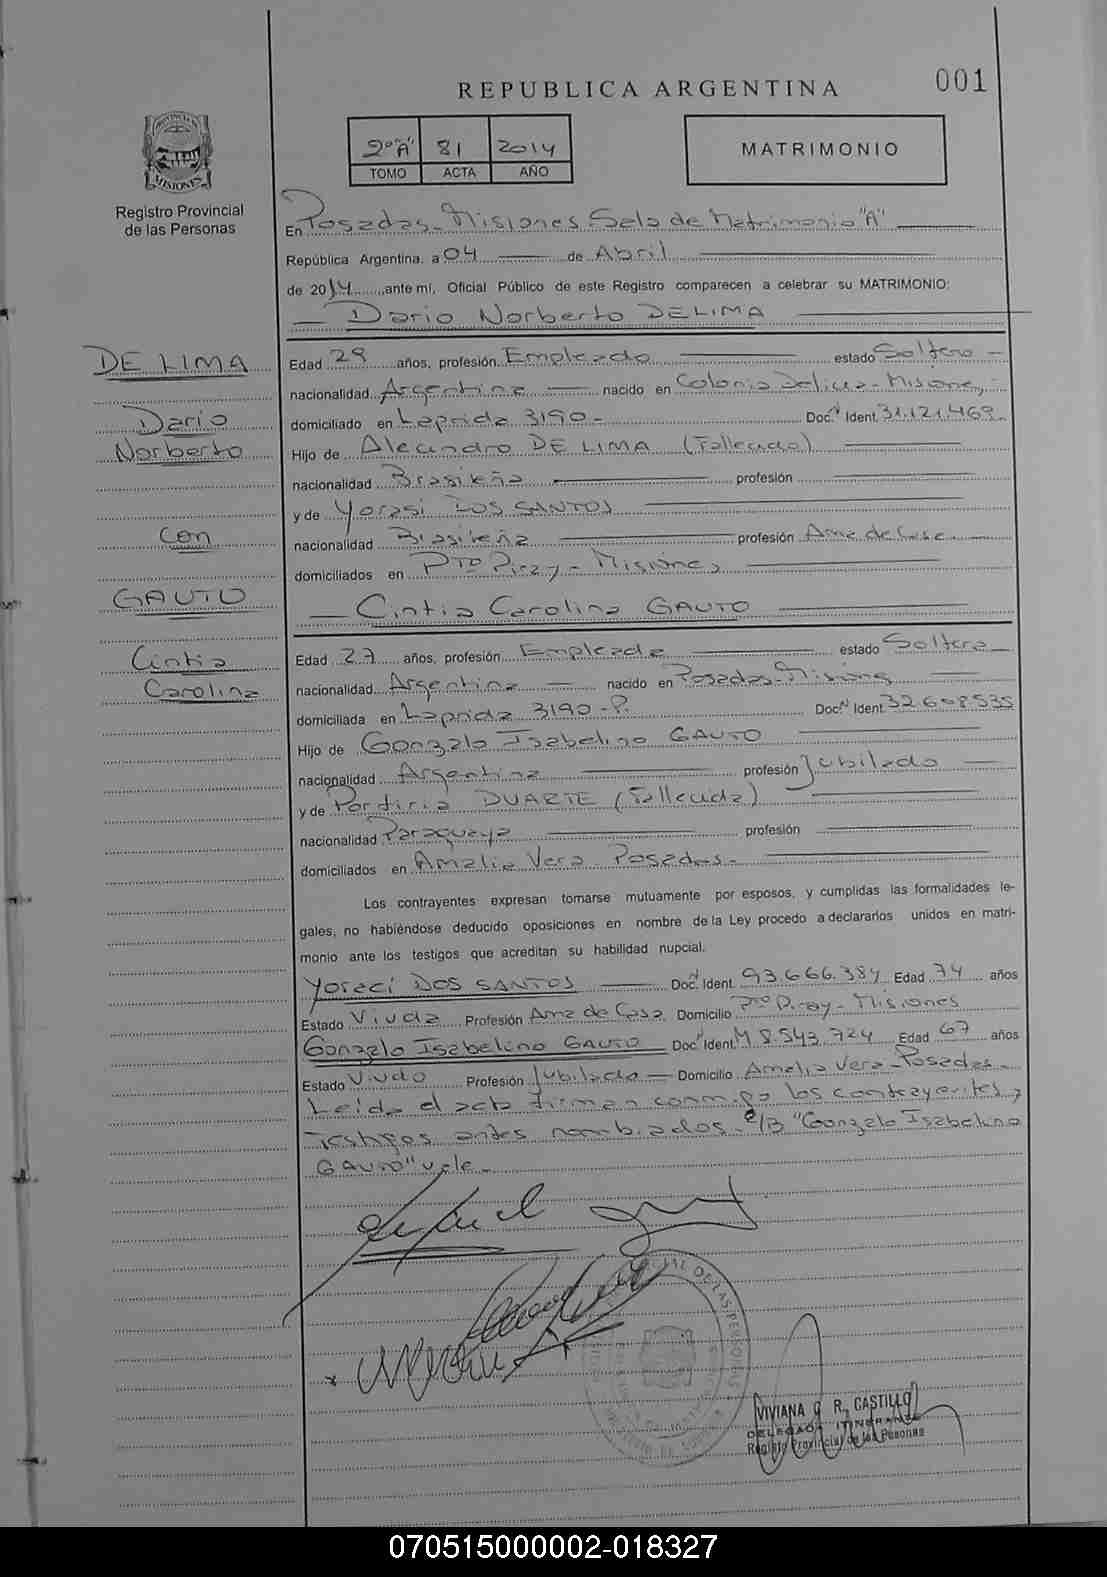 REPUBLICA ARGENTINA
001
2º "A" 81 2014
TOMO ACTA AÑO
MATRIMONIO
PROVINCIA DE
MISIONES
Registro Provincial
de las Personas
En Posadas - Misiones - Sala de Matrimonio "A"
República Argentina, a 04 de Abril
de 2014, ante mí, Oficial Público de este Registro comparecen a celebrar su MATRIMONIO:
Dario Norberto DE LIMA
DE LIMA
Dario
Norberto
con
GAUTO
Cintia
Carolina
Edad 29 años, profesión Empleado estado Soltero
nacionalidad Argentina nacido en Colonia Delicia - Misiones
domiciliado en Laprida 3190 - Docº Ident. 31.121.469
Hijo de Alecandro DE LIMA (Fallecido)
nacionalidad Brasileña profesión
y de Yorasi DOS SANTOS
nacionalidad Brasileña profesión Ama de Casa
domiciliados en Ptº Piray - Misiones
Cintia Carolina GAUTO
Edad 27 años, profesión Empleada estado Soltera
nacionalidad Argentina nacido en Posadas - Misiones
domiciliada en Laprida 3190 - P. Docº Ident. 32.608.535
Hijo de Gonzalo Isabelino GAUTO
nacionalidad Argentina profesión Jubilado
y de Porfiria DUARTE (Fallecida)
nacionalidad Paraguaya profesión
domiciliados en Amalia Vera Posadas -
Los contrayentes expresan tomarse mutuamente por esposos, y cumplidas las formalidades le-
gales, no habiéndose deducido oposiciones en nombre de la Ley procedo a declararlos unidos en matri-
monio ante los testigos que acreditan su habilidad nupcial.
Yoraci DOS SANTOS Docº Ident. 93.666.384 Edad 74 años
Estado Viuda Profesión Ama de Casa Domicilio Ptº Piray - Misiones
Gonzalo Isabelino GAUTO Docº Ident. M 8.543.724 Edad 67 años
Estado Viudo Profesión Jubilado Domicilio Amalia Vera - Posadas -
Leida el acta firman conmigo los contrayentes y
Testigos antes nombrados - e/B "Gonzalo Isabelino
GAUTO" vale -
VIVIANA R. CASTILLO
DELEGADA ITINERANTE
Registro Provincial de las Personas
070515000002-018327